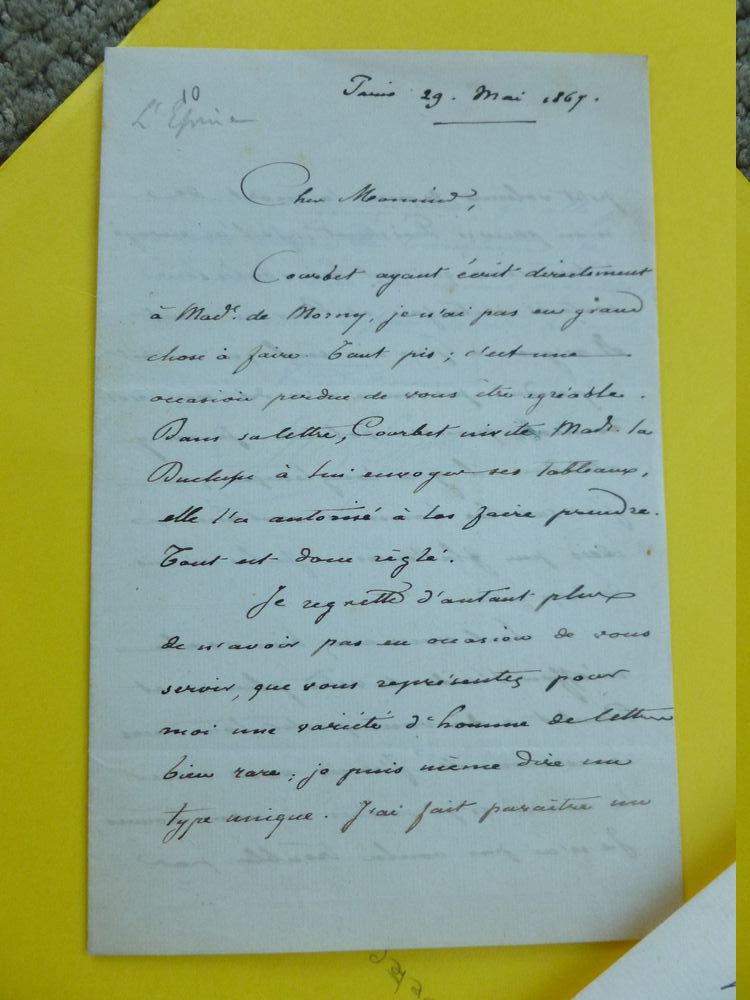 10
L'Epine
Paris 29. Mai 1867.
Cher Monsieur,
Courbet ayant écrit directement
à Mad.e de Morny, je n'ai pas eu grand
chose à faire. Tant pis ; c'est une
occasion perdue de vous être agréable.
Dans sa lettre, Courbet invite Mad.e la
Duchesse à lui envoyer ses tableaux,
elle l'a autorisé à les faire prendre.
Tout est donc réglé.
Je regrette d'autant plus
de n'avoir pas eu occasion de vous
servir, que vous représentez pour
moi une variété d'homme de lettres
bien rare ; je puis même dire un
type unique. J'ai fait paraître un